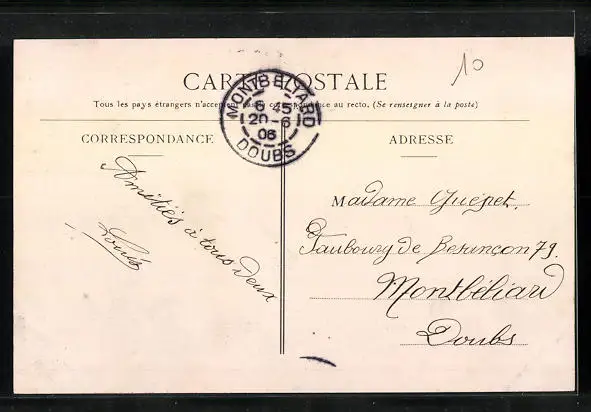 10
CARTE POSTALE
Tous les pays étrangers n'acceptent pas la correspondance au recto. (Se renseigner à la poste)
MONTBELIARD
6 45
20-6
06
DOUBS
CORRESPONDANCE
Amitiés à tous deux
Louis
ADRESSE
Madame Quépet.
Faubourg de Besançon 79.
Montbéliard
Doubs